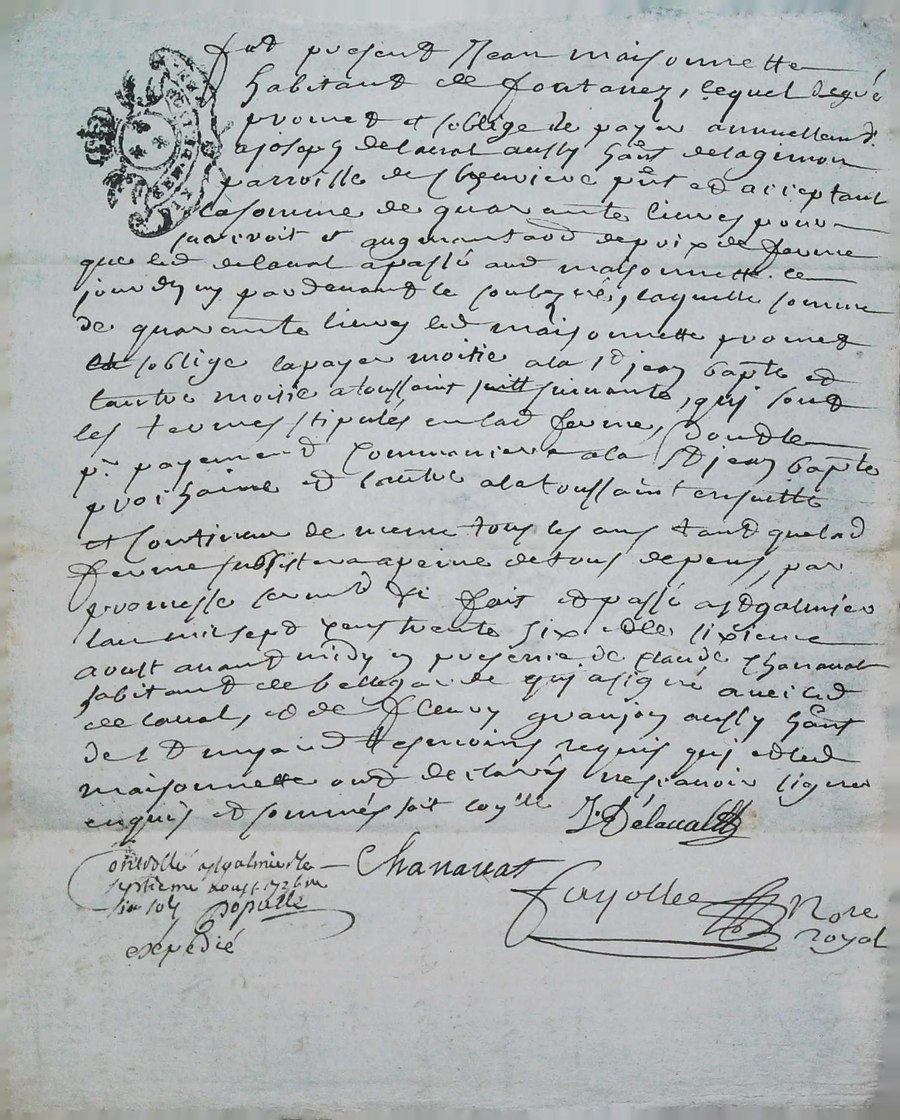 fut present Jean maisonnette
habitant de fontanez, lequel degré
promet et soblige de payer annuellemt
a joseph delaval aussy hant delagimon
parroisse de ste geneviere pnt et acceptant
la somme de quarante livres pour
surcroit et augmentaon de prix de ferme
que led delaval a passé aud maisonnette ce
jourdhuy pardevant le soubzné, laquelle somme
de quarante livres led maisonnette promet
soblige la payer moitie a la st jean bapte et
lautre moitie a toussaint suivante, qui sont
les termes stipulés en lad ferme, dont le
pr payement commencera a la st jean bapte
prochaine et lautre a la toussaint ensuitte
et continuer de meme tous les ans tant que lad
ferme subsistera a peine de tous depens, par
promesse sermt fait et passé a st galmier
lan mil sept cens trente six et le sixieme
aoust avant midy en presence de claude chanavat
habitant de bellegarde qui a signé avec led
delaval, et de fleury granjon aussy hant
de st tesmoins requis qui et led
maisonnette ont declarés ne scavoir signer
enquis et sommés soit
J. Délaval
Controllé a st galmier le Chanavat
sepieme aoust 1736
six sols populle
Fayolle Nore
royal
expédié